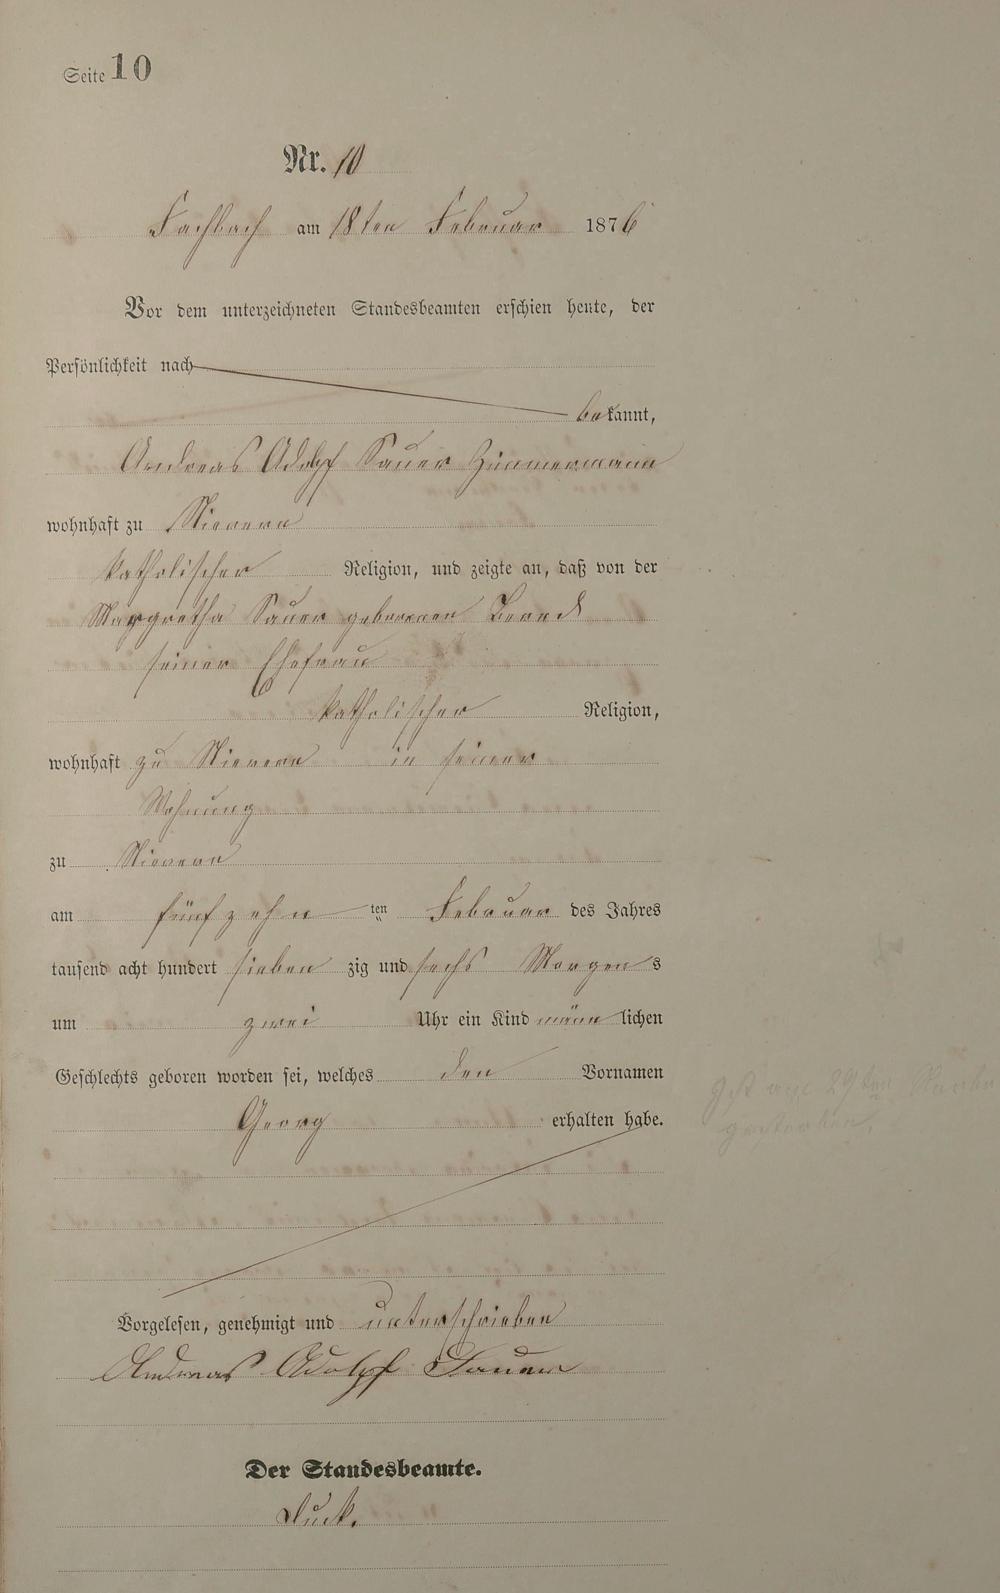 Seite 10
Nr. 10
Fachbach am 18ten Februar 1876
Vor dem unterzeichneten Standesbeamten erschien heute, der
Persönlichkeit nach
bekannt,
Andreas Adolpf Sauer Zimmermann
wohnhaft zu Nievern
katholischer Religion, und zeigte an, daß von der
Margretha Sauer geborenen
seiner Ehefrau
katholischer Religion,
wohnhaft zu Nievern in seiner
Wohnung
zu Nievern
am fünfzehnten Februar des Jahres
tausend acht hundert siebenzig und sechs Morgens
um zwei Uhr ein Kind männlichen
Geschlechts geboren worden sei, welches den Vornamen
Georg erhalten habe.
am 29ten
gestorben.
Vorgelesen, genehmigt und unterschrieben
Andreas Adolpf Sauer
Der Standesbeamte.